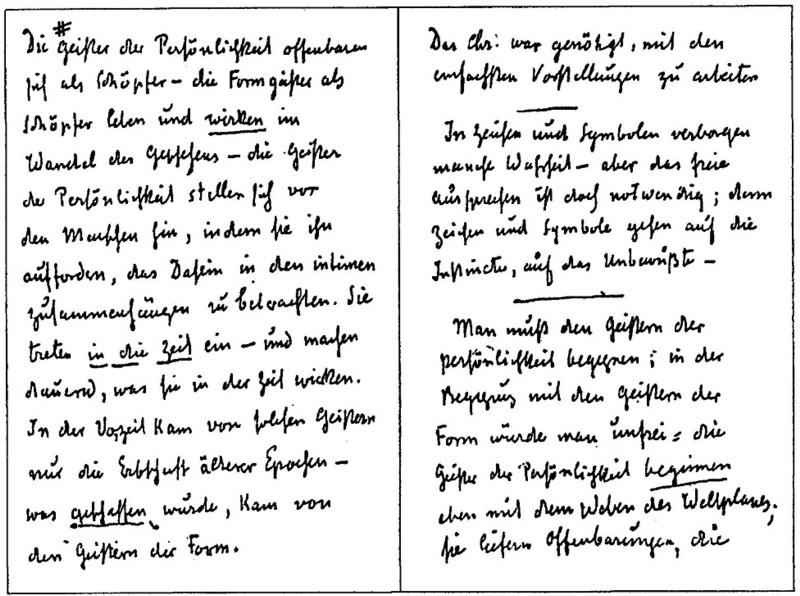 Die Geister der Persönlichkeit offenbaren
sich als Schöpfer – die Formgeister als
Schöpfer leben und wirken im
Wandel des Geschehens – die Geister
der Persönlichkeit stellen sich vor
den Menschen hin, indem sie ihn
auffordern, das Dasein in den intimen
Zusammenhängen zu betrachten. Sie
treten in die Zeit ein – und machen
dauernd, was sie in der Zeit wirken.
In der Vorzeit kam von solchen Geistern
nur die Erbschaft älterer Epochen –
was geschaffen wurde, kam von
den Geistern der Form.
Das Chr: war genötigt, mit den
einfachsten Vorstellungen zu arbeiten
In Zeichen und Symbolen verborgen
manche Wahrheit – aber das freie
aussprechen ist doch notwendig; denn
Zeichen und Symbole gehen auf die
Instincte, auf das Unbewußte –
Man muß den Geistern der
Persönlichkeit begegnen; in der
Begegng mit den Geistern der
Form würde man unfrei = die
Geister der Persönlichkeit beginnen
eben mit dem Weben des Weltplanes;
sie liefern Offenbarungen, die